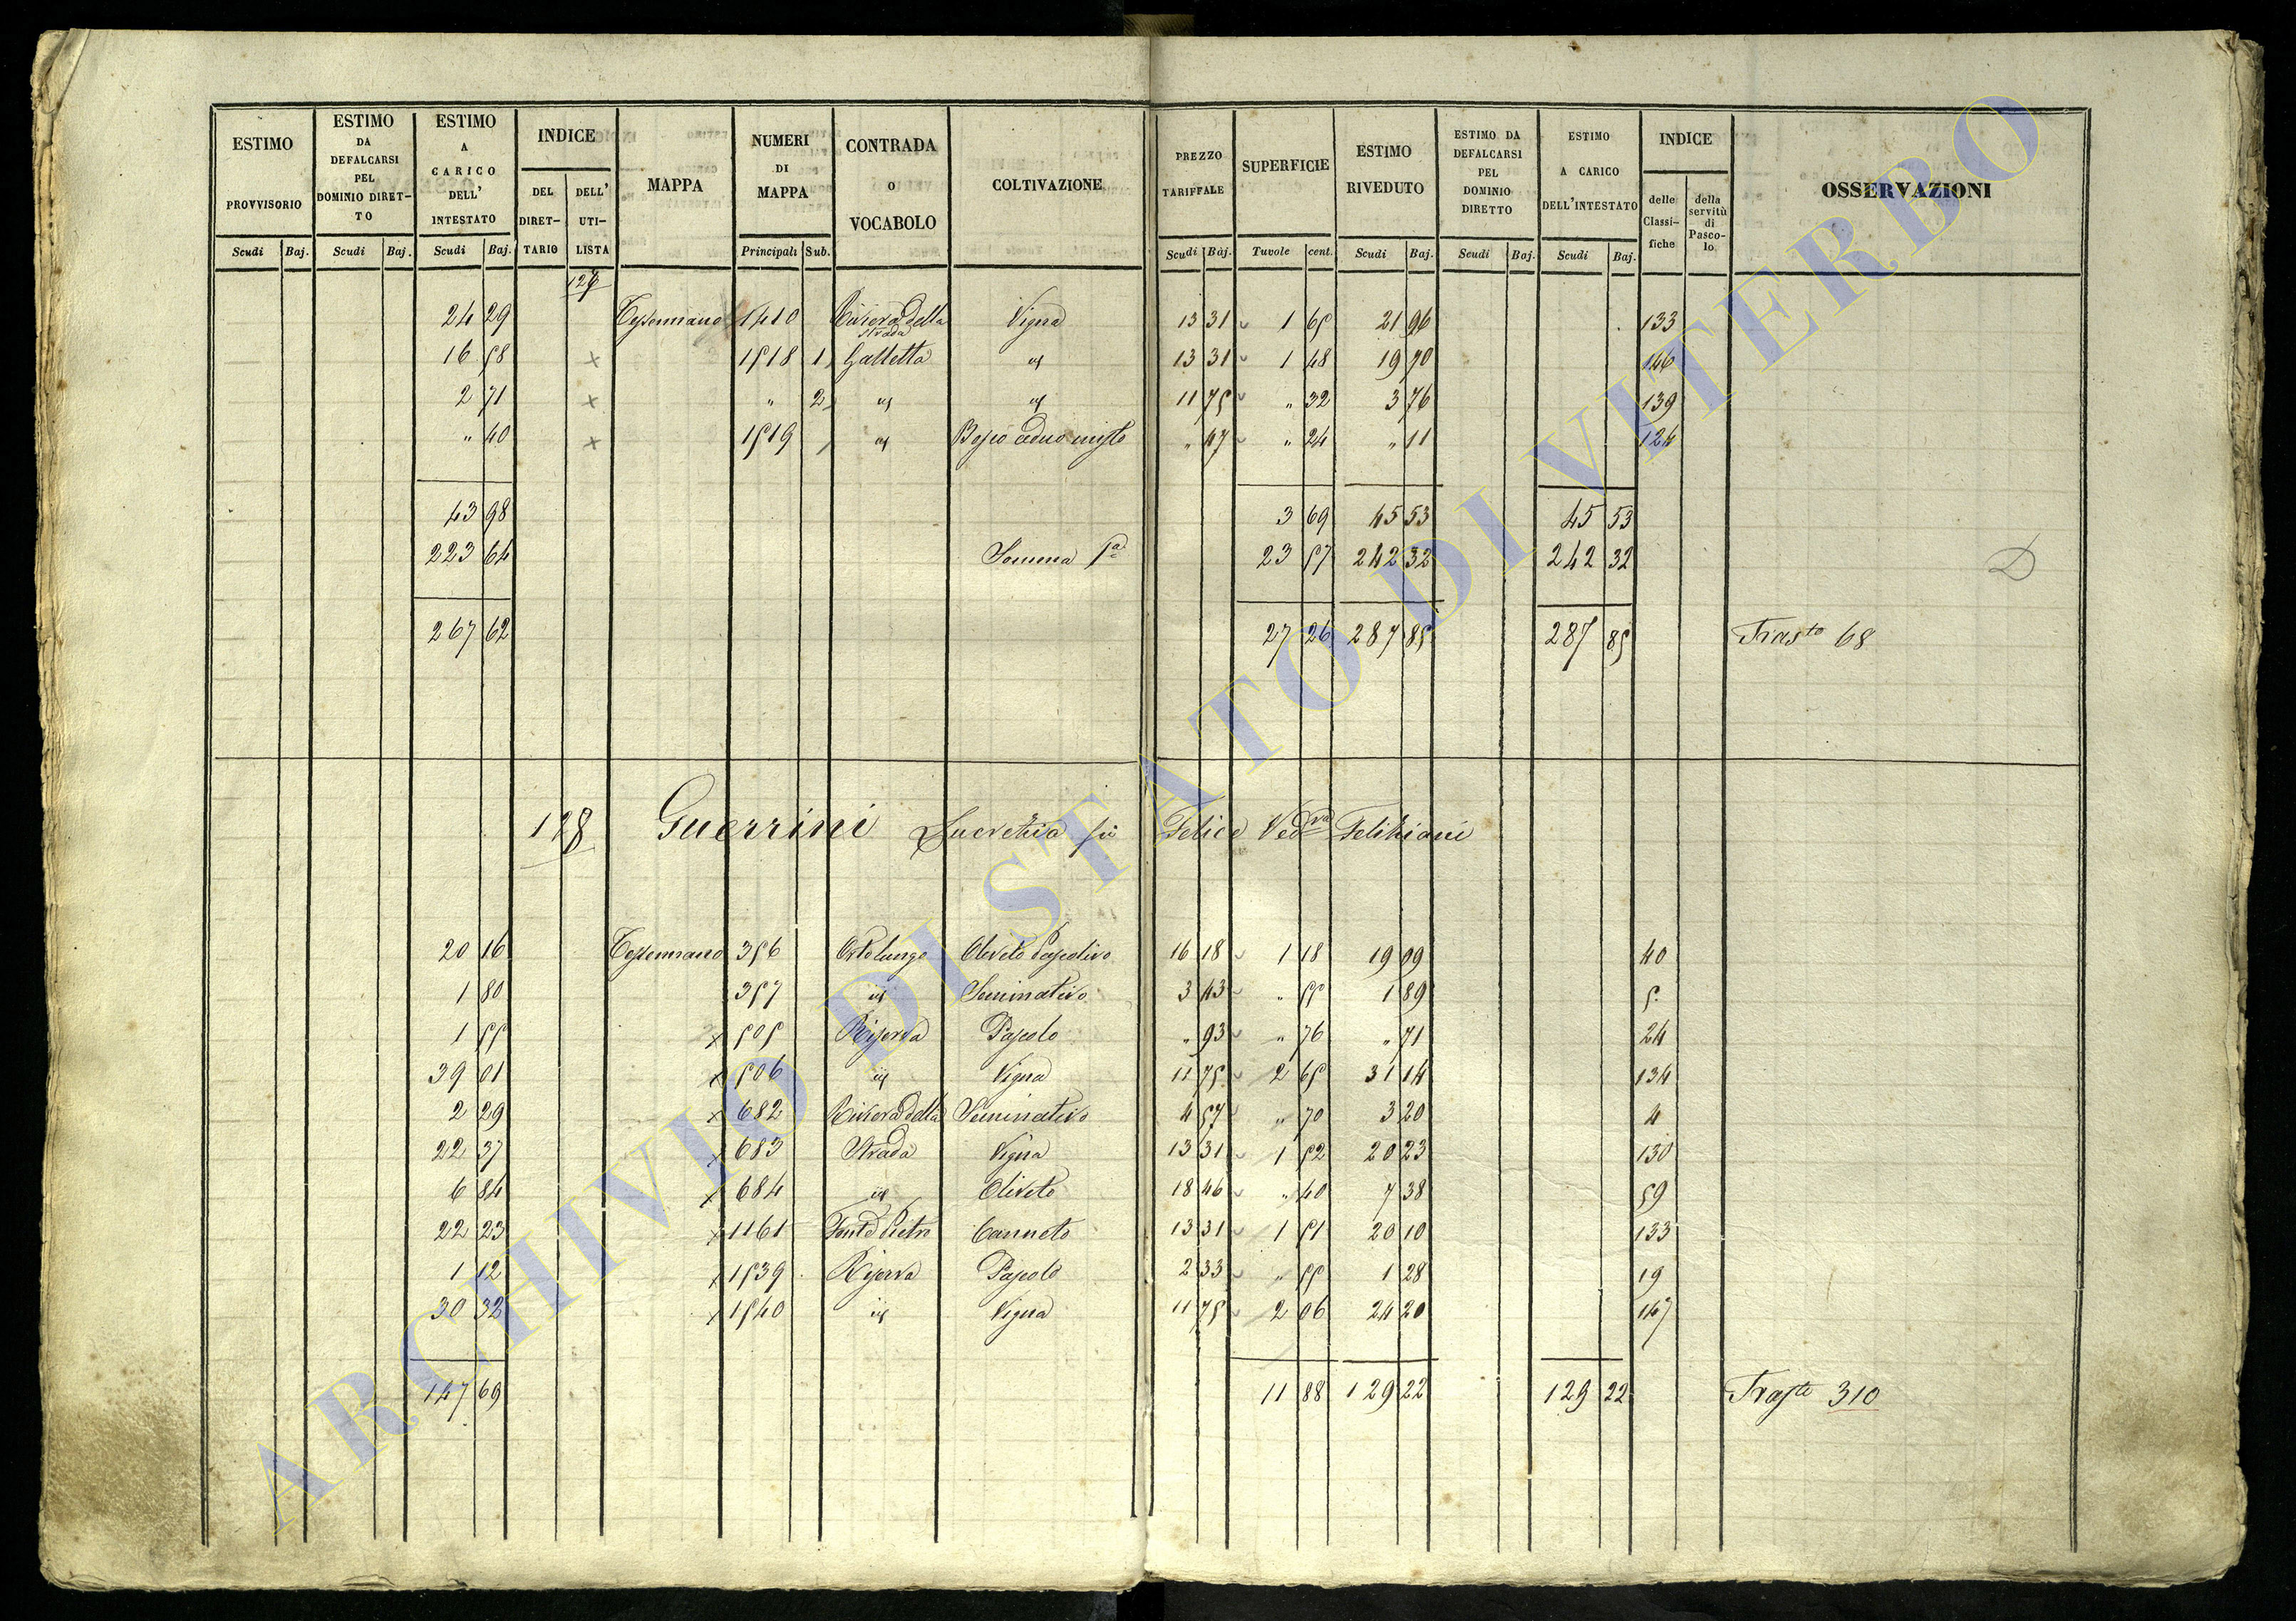 ESTIMO PROVVISORIO | ESTIMO DA DEFALCARSI PEL DOMINIO DIRET-TO | ESTIMO A CARICO DELL' INTESTATO | INDICE | MAPPA | NUMERI DI MAPPA | CONTRADA O VOCABOLO | COLTIVAZIONE | PREZZO TARIFFALE | SUPERFICIE | ESTIMO RIVEDUTO | ESTIMO DA DEFALCARSI PEL DOMINIO DIRETTO | ESTIMO A CARICO DELL'INTESTATO | INDICE | OSSERVAZIONI
DEL DIRET-TARIO | DELL' UTI-LISTA | delle Classi-fiche | della servitù di Pasco-lo
Scudi | Baj. | Scudi | Baj. | Scudi | Baj. | Principali | Sub. | Scudi | Baj. | Tavole | cent. | Scudi | Baj. | Scudi | Baj. | Scudi | Baj.
127
24 29 Tessennano 1410 Riviera della strada Vigna 13 31 1 65 21 96 133
16 58 x 1518 1 Galletta id 13 31 1 48 19 70 146
2 71 x " 2 id id 11 75 " 32 3 76 139
" 40 x 1519 id Bosco ceduo misto " 47 " 24 " 11 124
43 98 3 69 45 53 45 53
223 64 Somma Pa 23 57 242 32 242 32 D
267 62 27 26 287 85 287 85 Trasto 68
128 Guerrini Lucrezia fù Felice Vedva Feliziani
20 16 Tessennano 356 Ortolungo Oliveto Pascolivo 16 18 1 18 19 09 40
1 80 357 id Seminativo 3 43 " 55 1 89 5
1 55 x 505 Riserva Pascolo " 93 " 76 " 71 24
39 01 x 506 id Vigna 11 75 2 65 31 14 134
2 29 x 682 Riviera della Seminativo 4 57 " 70 3 20 4
22 37 x 683 Strada Vigna 13 31 1 52 20 23 130
6 84 x 684 id Oliveto 18 46 " 40 7 38 59
22 23 x 1161 Pietro Canneto 13 31 1 51 20 10 133
1 12 x 1539 Riserva Pascolo 2 33 " 55 1 28 19
30 32 x 1540 id Vigna 11 75 2 06 24 20 147
147 69 11 88 129 22 129 22 Traste 310
ARCHIVIO DI STATO DI VITERBO